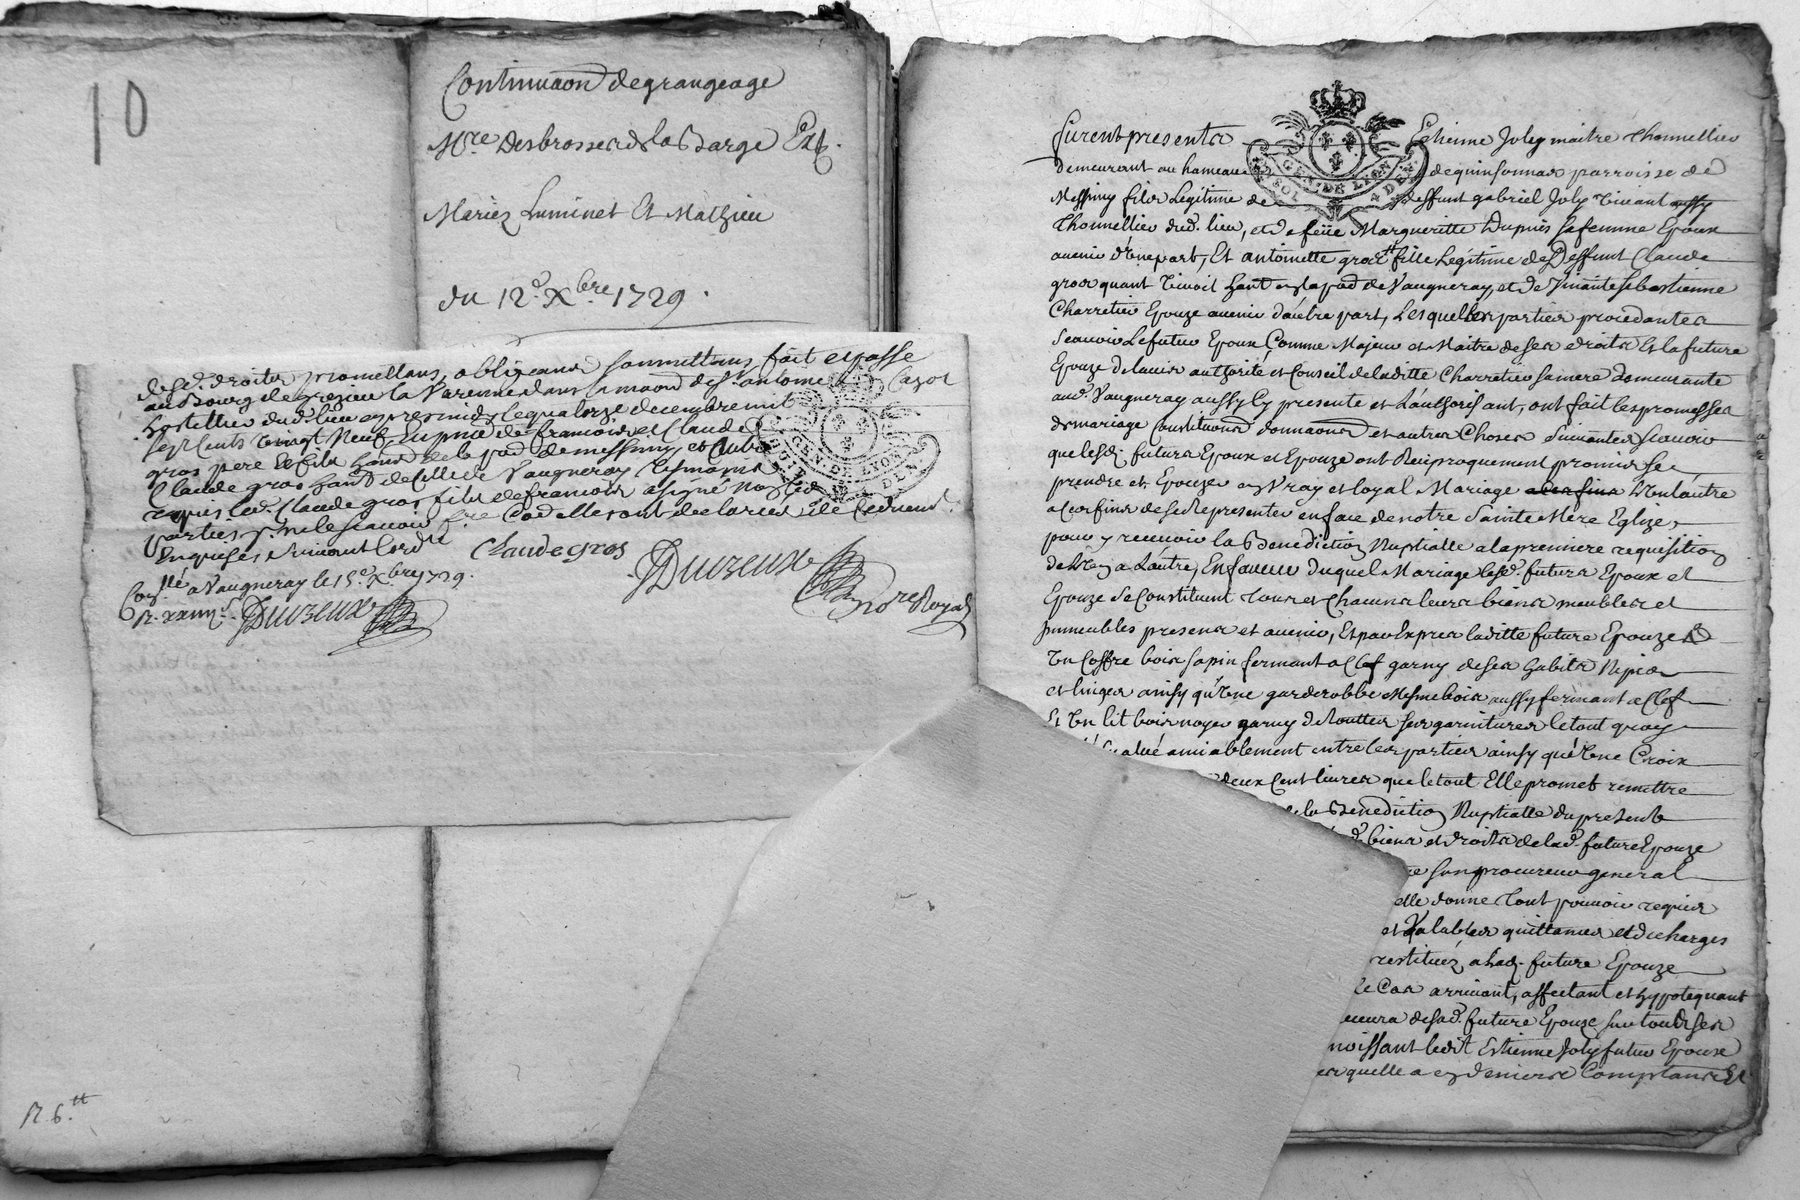 10
Continuaõn de grangeage
Mre Desbrosses de la Barge Ext.
Mariez Luminet Et Mathieu
du 12e. Xbre 1729.
R. 6.tt
desd. droits promettans, obligeans soumettans, fait et passé
au Bourg de grezieu la Varenne dans la maoñ de sr. antoine Cazot
hostellier dud. lieu apres midy le quatorze decembre mil
sept cents vingt Neuf, en pnce de françois et Claude
gros pere Et fils habt de la pad de messimy, et autre
Claude gros habt de Celle de Vaugneray Tesmoins
requis led. Claude gros fils de françois a signé non les
parties pr. ne le scavoir fre Cad elles ont declarées de Ce
Enquises et suivant Lordre
Claude gros
Duvzeux
Nore Royal
Conllé a Vaugneray le 15e. Xbre 1729.
R. xxiiii s.
Duvzeux
GEN. DE LYON
furent presents Etienne Joly maitre thonnellier
demeurant au hameau de quinsonnas parroisse de
Messimy fils Legitime de deffunt gabriel Joly vivant aussy
Thonnellier dud. lieu, et de feüe Margueritte Dupuis sa femme Epoux
avenir d'une part, Et antoinette gros fille Légitime de Deffunt Claude
gros quant vivoit habt en la pad de Vaugneray, et de vivante Sebastienne
Charretier Epouze avenir d'autre part, Lesquelles parties procedantes
Scavoir Le futur Epoux Comme Majeur et Maitre de ses droits Et la future
Epouze de lavis authorité et Conseil de laditte Charretier sa mere demeurante
aud. Vaugneray aussy Cy presente et L'authorisant, ont fait les promesses
de mariage Constitutions donnaons et autres Choses Suivantes Scavoir
que lesd. futurs Epoux et Epouze ont Reciproquement promis se
prendre et Epouzer en vray et loyal Mariage L'un lautre
a ces fins de se Representer en face de notre Sainte Mere Eglize,
pour y recevoir la Benediction Nuptialle a la premiere requisition
de L'un a L'autre, En faveur duquel Mariage lesd. futurs Epoux et
Epouze Se Constituent tous et chacuns leurs biens meubles et
jmmeubles presens et avenir, Et par Exprès laditte future Epouze
Un Coffre bois sapin fermant a Clef garny de ses habits Nipes
et linges ainsy qu'une garderobbe mesme bois aussy fermant a Clef
Et Un lit bois noyer garny de toutes ses garnitures le tout quoy
Evalué amiablement entre les parties ainsy qu'une Croix
deux Cent livres que le tout Elle promet remettre
de la Benediction Nuptialle du present
biens et droits de lad. future Epouze
son procureur general
elle donne tout pouvoir requis
et valables quittances et decharges
restituez a lad. future Epouze
le Cas arrivant, affectant et hypotequant
de sad. future Epouze sur tous ses
noissant ledit Estienne Joly futur Epoux
quelle a en deniers Comptans Et